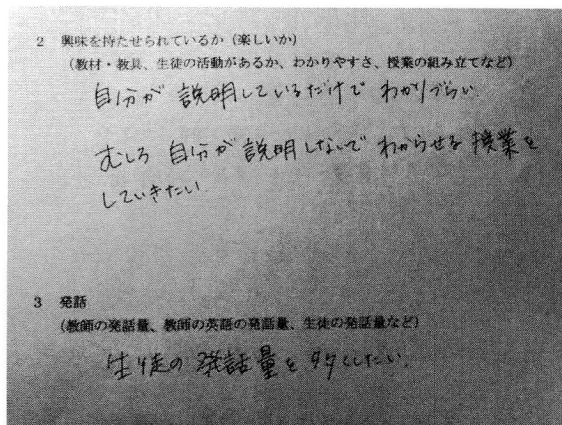 2 興味を持たせられているか（楽しいか）
（教材・教具、生徒の活動があるか、わかりやすさ、授業の組み立てなど）
自分が 説明しているだけで わかりづらい
むしろ 自分が 説明しないで わからせる 授業を
していきたい
3 発話
（教師の発話量、教師の英語の発話量、生徒の発話量など）
生徒の 発話量を 多くしたい.